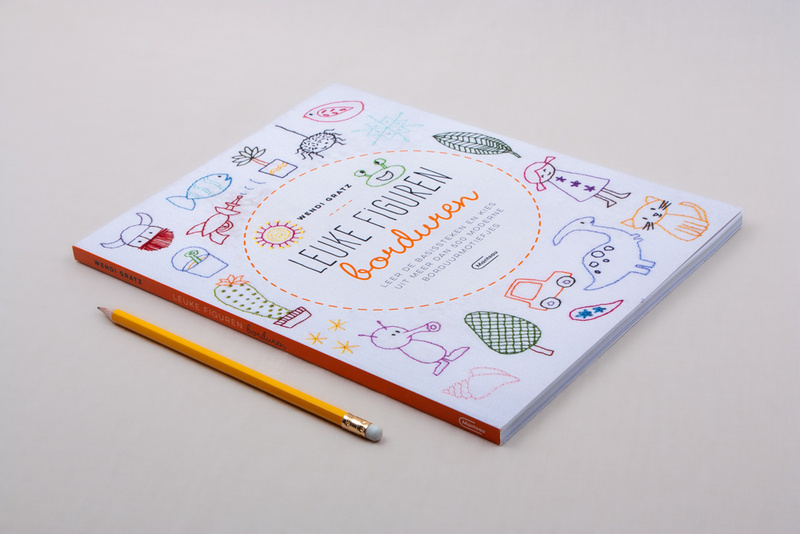 WENDI GRATZ
LEUKE FIGUREN
borduren
LEER DE BASISSTEKEN EN KIES
UIT MEER DAN 500 MODERNE
BORDUURMOTIEFJES
Manteau
WENDI GRATZ
LEUKE FIGUREN borduren
Manteau